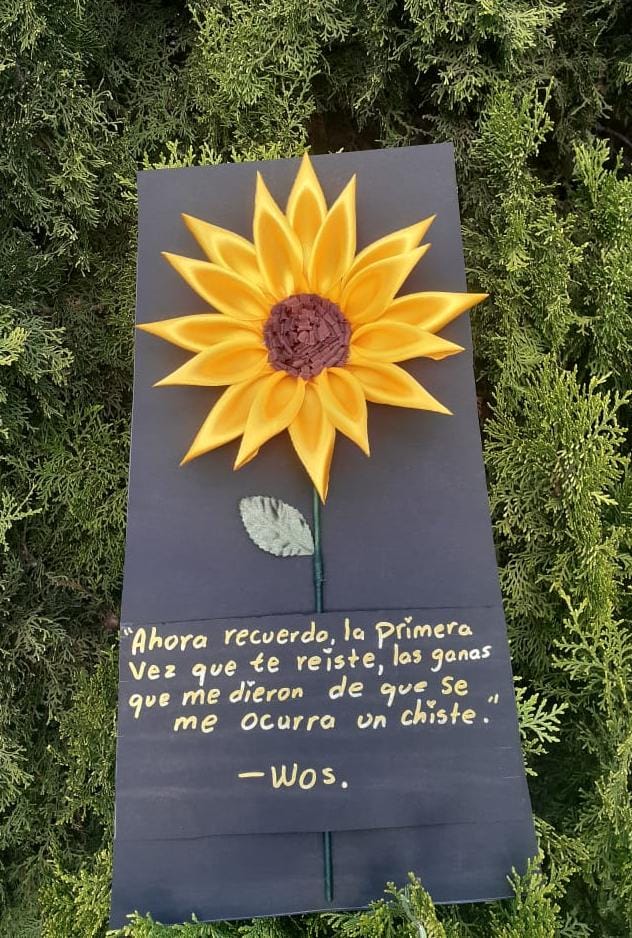 "Ahora recuerdo, la primera
vez que te reiste, las ganas
que me dieron de que se
me ocurra un chiste."
—Wos.